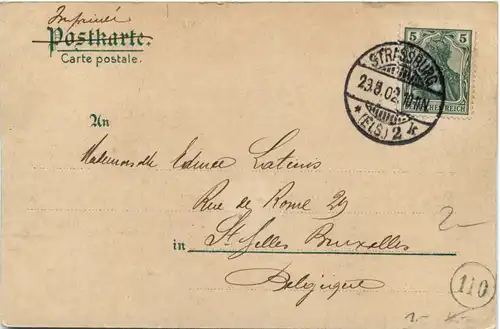 Imprimé
Postkarte.
Carte postale.
5 5
STRASSBURG
23.8.02. 10-11 N.
* (ELS.) 2 k
DEUTSCHES REICH
An
Mademoiselle
Rue de Rome 29
in St Gilles Bruxelles
Belgique
2-
110
2.-